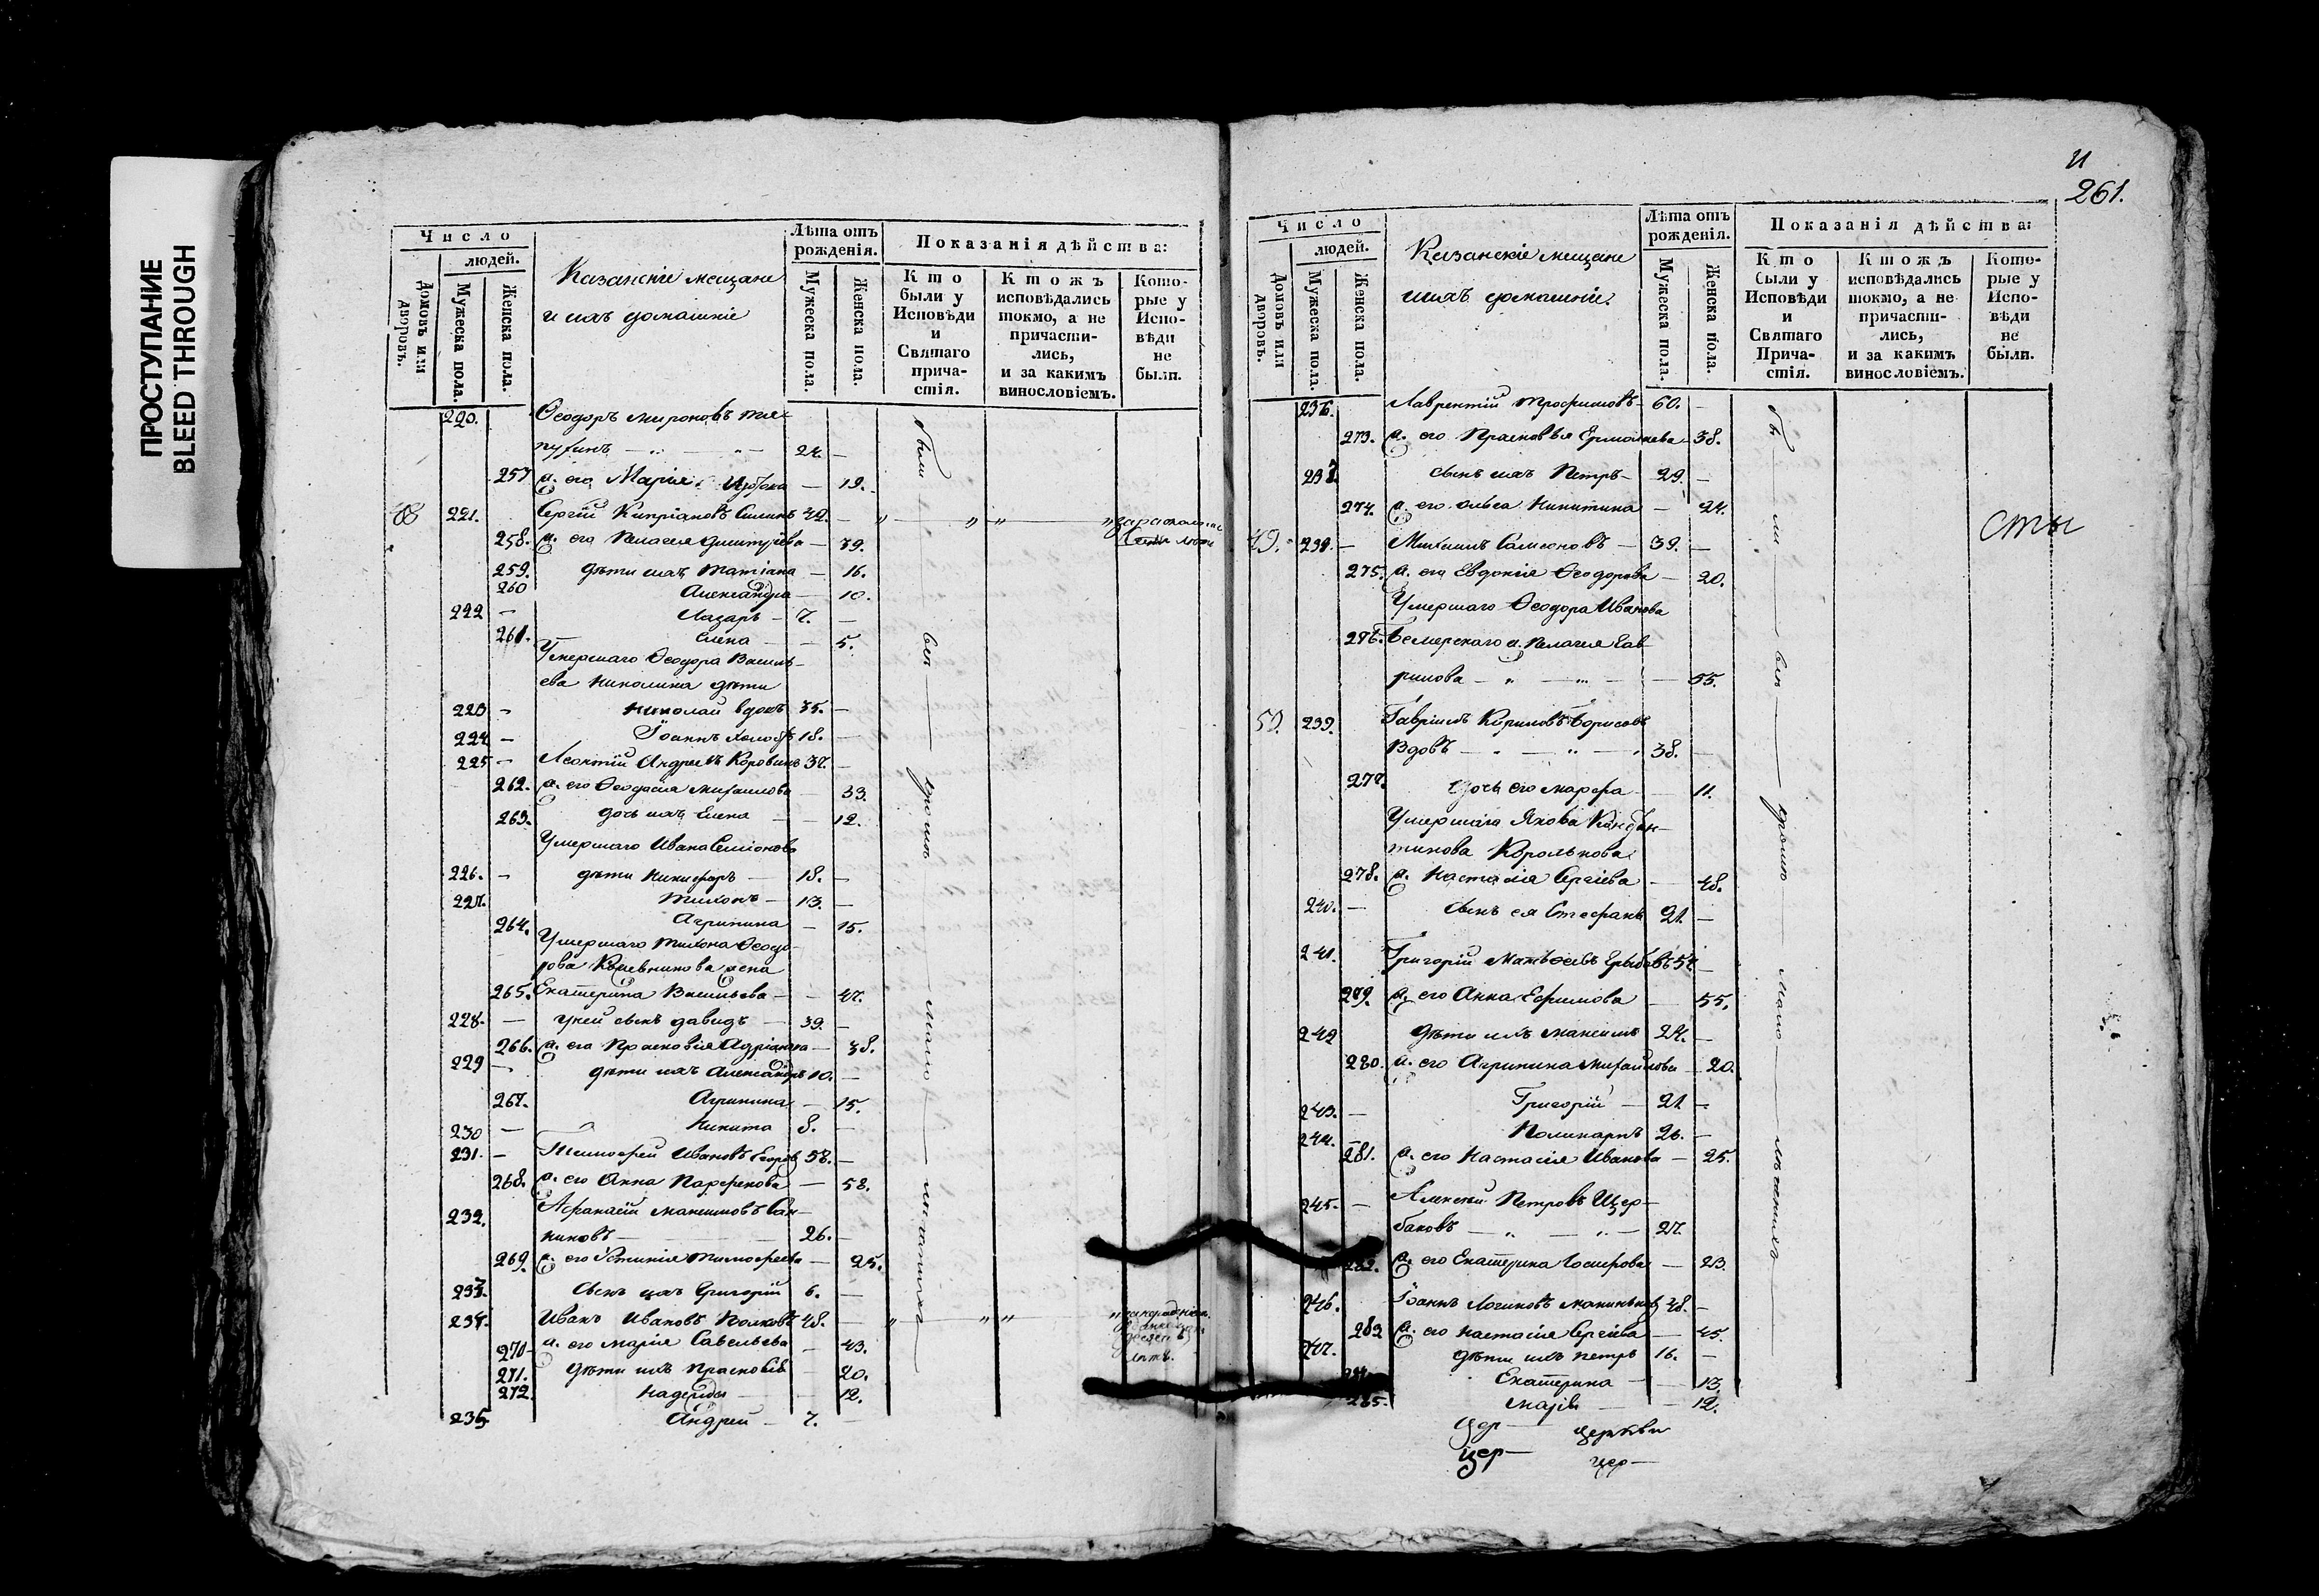 ПРОСТУПАНИЕ
BLEED THROUGH
Число
людей.
Домовъ или дворовъ.
Мужеска пола.
Женска пола.
Казанскіе мещане
и ихъ домашніе
Лѣта отъ рожденія.
Мужеска пола.
Женска пола.
Показанія дѣйства:
Кто были у Исповѣди и Святаго причастія.
Ктожъ исповѣдались токмо, а не причастились, и за какимъ винословіемъ.
Которые у Исповѣди не были.
220. Ѳеодоръ Мироновъ
24. —
257 ж. его Марія — 19.
221. Сергій Кипріановъ 42. —
258. ж. его Пелагея Димитріева — 39.
259. дѣти ихъ Татіана — 16.
260 Александра — 10.
222 — Лазарь — 7. —
261. Елена — 5.
Умершаго Ѳеодора Василь-
ева Николина дѣти
223 — Николай вдовъ 35. —
224 — Іоаннъ холостъ 18. —
225 — Леонтій Андреевъ Коровинъ 37. —
262. ж. его Ѳеодосія Михаилова 33.
263. дочь ихъ Елена — 12.
Умершаго Ивана Семіонова
226. — дѣти Никифоръ — 18. —
227. Тихонъ — 13. —
264. Агрипина — 15.
Умершаго Тихона Ѳеодо-
рова Кожевникова жена
265. Екатерина Васильева — 47.
228. — у ней сынъ Давидъ — 39. —
266. ж. его Прасковія Адріанова — 38.
229 — дѣти ихъ Александръ 10. —
267. Агрипина — 15.
230 — Никита 8. —
231. — Тимофей Ивановъ Егоровъ 58. —
268. ж. его Анна Парфенова — 58.
232. Афанасій Максимовъ Сан-
никовъ — 26. —
269. ж. его Устинія Тимофеева — 25.
233. сынъ ихъ Григорій 6. —
234. Иванъ Ивановъ Волковъ 48. —
270 ж. его Марія Савельева — 43.
271. дѣти ихъ Прасковія 20.
272. Надежда 12.
235. Андрей — 7. —
были
всѣ
261.
Число
людей.
Домовъ или дворовъ.
Мужеска пола.
Женска пола.
Казанскіе мещане
и ихъ домашніе.
Лѣта отъ рожденія.
Мужеска пола.
Женска пола.
Показанія дѣйства:
Кто были у Исповѣди и Святаго Причастія.
Ктожъ исповѣдались токмо, а не причастились, и за какимъ винословіемъ.
Которые у Исповѣди не были.
236. Лаврентій Трофимовъ — 60. —
273. ж. его Прасковья Ермолаева 38.
237. сынъ ихъ Петръ — 29. —
274. ж. его Ольга Никитина — 24.
сты
49. 238. — Михаилъ Самсоновъ — 39. —
275. ж. его Евдокія Ѳеодорова — 20.
Умершаго Ѳеодора Иванова
276. ж. Пелагея Гав-
рилова — 55.
50. 239. Гавріилъ Кириловъ Борисовъ
Вдовъ — 38. —
277. дочь его Марфа — 11.
Умершаго Якова Констан-
тинова Королькова
278. ж. Настасія Сергіева — 48.
240. — сынъ ея Стефанъ 21. —
241. Григорій Матвѣевъ
279. ж. его Анна Ефимова — 55.
242 дѣти ихъ Максимъ 24. —
280. ж. его Агрипина Михайлова — 20.
243. — Григорій — 21 —
244. Поликарпъ 26. —
281. ж. его Настасія Иванова — 25.
245. — Алексѣй Петровъ Щер-
баковъ — 27.
282. ж. его Екатерина Іосифова — 23.
246. Іоаннъ Логиновъ 48. —
283 ж. его Настасія Сергіева — 45.
247. дѣти ихъ Петръ 16. —
Екатерина — 13.
285. Марія — 12.
цер церкви
цер— цер—